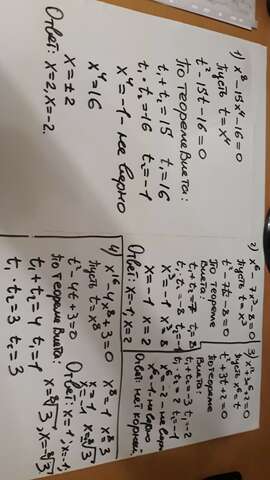 1) x⁸-15x⁴-16=0
Пусть t=x⁴
t²-15t-16=0
По теореме Виета:
t₁+t₂=15 t₁=16
t₁·t₂=16 t₂=-1
x⁴=-1-не верно
x⁴=16
x=±2
Ответ: x=2, x=-2.
2) x⁶-7x³-8=0
Пусть t=x³
t²-7t-8=0
По теореме
Виета:
t₁+t₂=7 t₁=8
t₁·t₂=-8 t₂=-1
x³=-1 x³=8
x=-1 x=2
Ответ: x=-1, x=2
3) x¹²+3x⁶+2=0
Пусть x⁶=t
t²+3t+2=0
По теореме
Виета:
t₁+t₂=-3 t₁=-2
t₁·t₂=2 t₂=-1
x⁶=-2-не верно
x⁶=-1-не верно
Ответ: нет корней.
4) x¹⁶-4x⁸+3=0
Пусть t=x⁸
t²-4t+3=0
По теореме Виета:
t₁+t₂=4 t₁=1
t₁·t₂=3 t₂=3
x⁸=1 x⁸=3
x=1
x=-1 x=±⁸√3
Ответ: x=1, x=-1,
x=⁸√3, x=-⁸√3